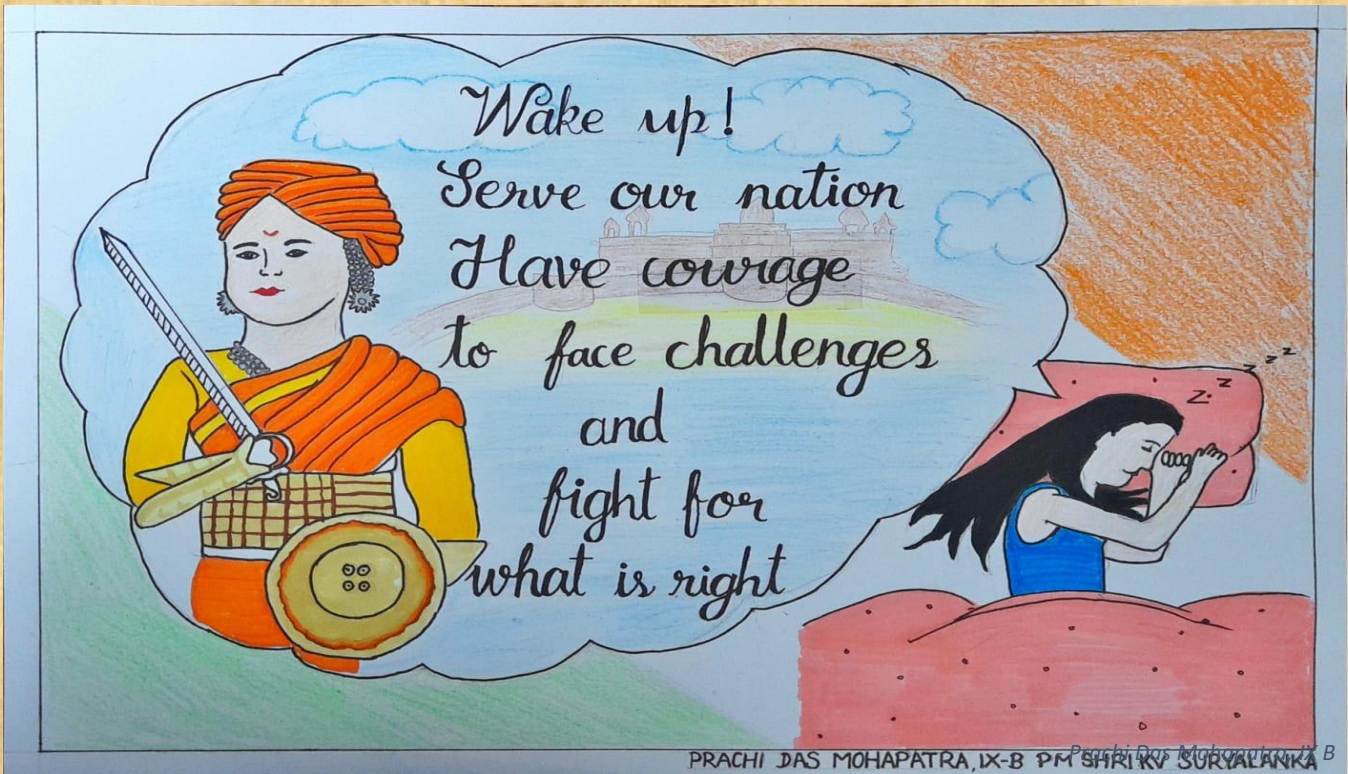 Wake up!
Serve our nation
Have courage
to face challenges
and
fight for
what is right
z z z z
PRACHI DAS MOHAPATRA, IX-B PM SHRI KV SURYALANKA
Prachi Das Mohapatra, IX B